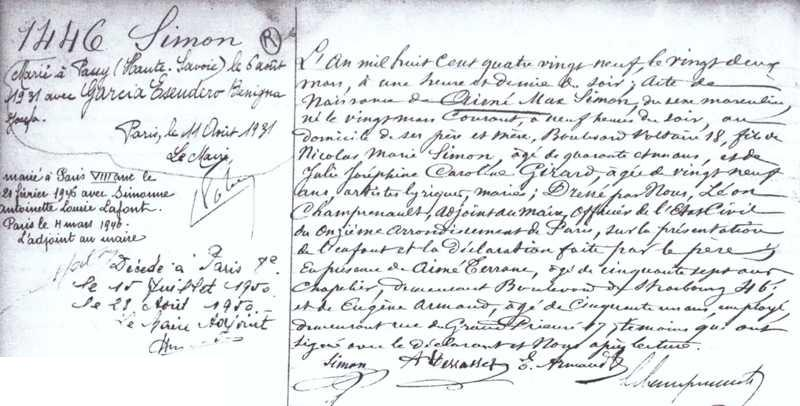 1446 Simon
R
Marié à Passy (Haute-Savoie) le 6 août
1931 avec Garcia Escudero Benigna
Paris, le 11 Août 1931
Le Maire,
marié à Paris VIII arr. le
21 février 1946 avec Simonne
Antoinette Louise Lafont.
Paris le 11 mars 1946
L'adjoint au maire
Décédé à Paris
le 15 Juillet 1950
le 28 Août 1950.
Le Maire Adjoint
L'An mil huit Cent quatre vingt neuf, le vingt deux
mars, à une heure et demie du soir; Acte de
Naissance de Aimé Max Simon, du sexe masculin,
né le vingt mars Courant, à neuf heures du soir, au
domicile de ses père et mère, Boulevard Voltaire 18, fils de
Nicolas Marie Simon, âgé de quarante et un ans, et de
Julie Joséphine Caroline Girard, âgée de vingt neuf
ans, artistes lyriques, mariés; Dressé par Nous, Léon
Champrenault, adjoint au maire, Officier de l'Etat Civil
du Onzième Arrondissement de Paris, sur la présentation
de l'enfant et la déclaration faite par le père
En présence de Aimé, âgé de cinquante sept ans
Chapelier, demeurant Boulevard de Strasbourg 46
et de Eugène Armand, âgé de Cinquante un ans, employé,
demeurant rue du Grand Prieuré 17, témoins qui ont
signé avec le déclarant et Nous après lecture.
Simon E. Armand